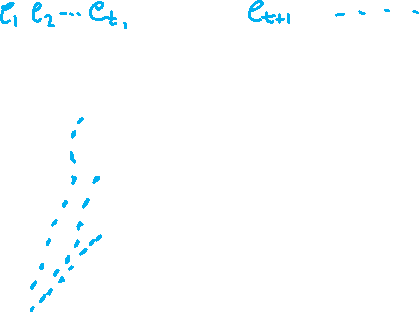 e₁ e₂ ... e_t, e_{t+1} - - - -